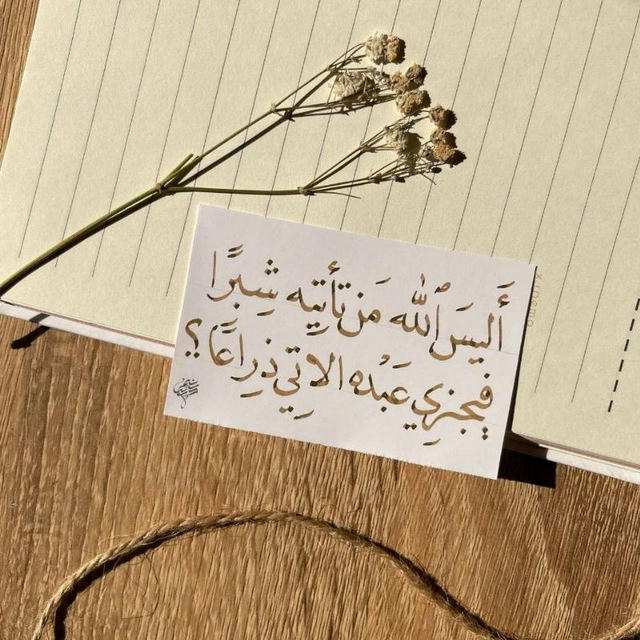 أَليسَ ٱللّٰه مَن تأتيه شِبرًا
فيجزي عَبْده الاتي ذِراعًا؟